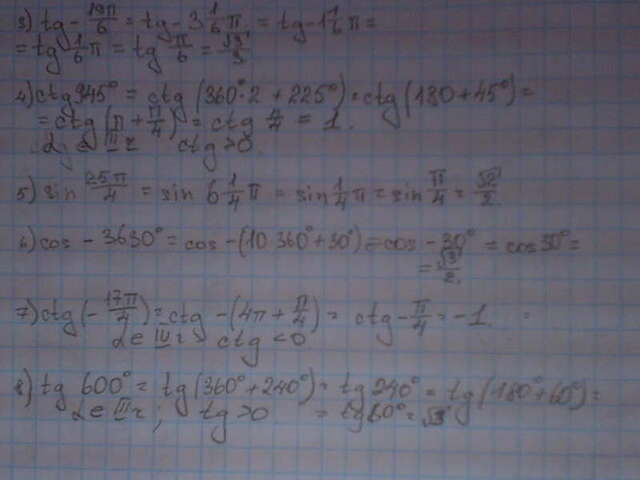 3) tg - 19π/6 = tg - 3 1/6 π = tg - 1 1/6 π =
= tg 1/6 π = tg π/6 = √3/3
4) ctg 945° = ctg (360°·2 + 225°) = ctg (180 + 45°) =
= ctg (π + π/4) = ctg π/4 = 1.
α ∈ III ч ctg > 0.
5) sin 25π/4 = sin 6 1/4 π = sin 1/4 π = sin π/4 = √2/2
6) cos - 3630° = cos - (10 360° + 30°) = cos - 30° = cos 30° =
= √3/2.
7) ctg (- 17π/4) = ctg - (4π + π/4) = ctg - π/4 = -1.
α ∈ IV ч ctg < 0
8) tg 600° = tg (360° + 240°) = tg 240° = tg (180° + 60°) =
α ∈ III ч; tg > 0 = tg 60° = √3